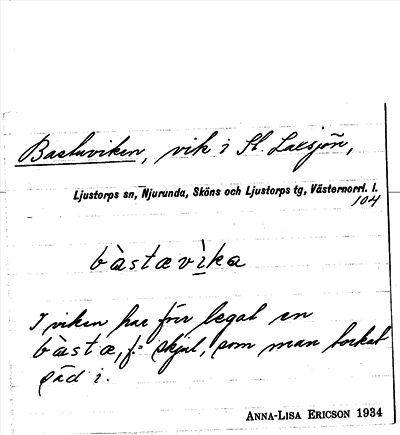 Bastuviken, vik i St. Laxsjön,
Ljustorps sn, Njurunda, Sköns och Ljustorps tg, Västernorrl. l.
104
bàstævìka
I viken har förr legat en
bàstæ, f: skjul, som man torkat
säd i.
ANNA-LISA ERICSON 1934